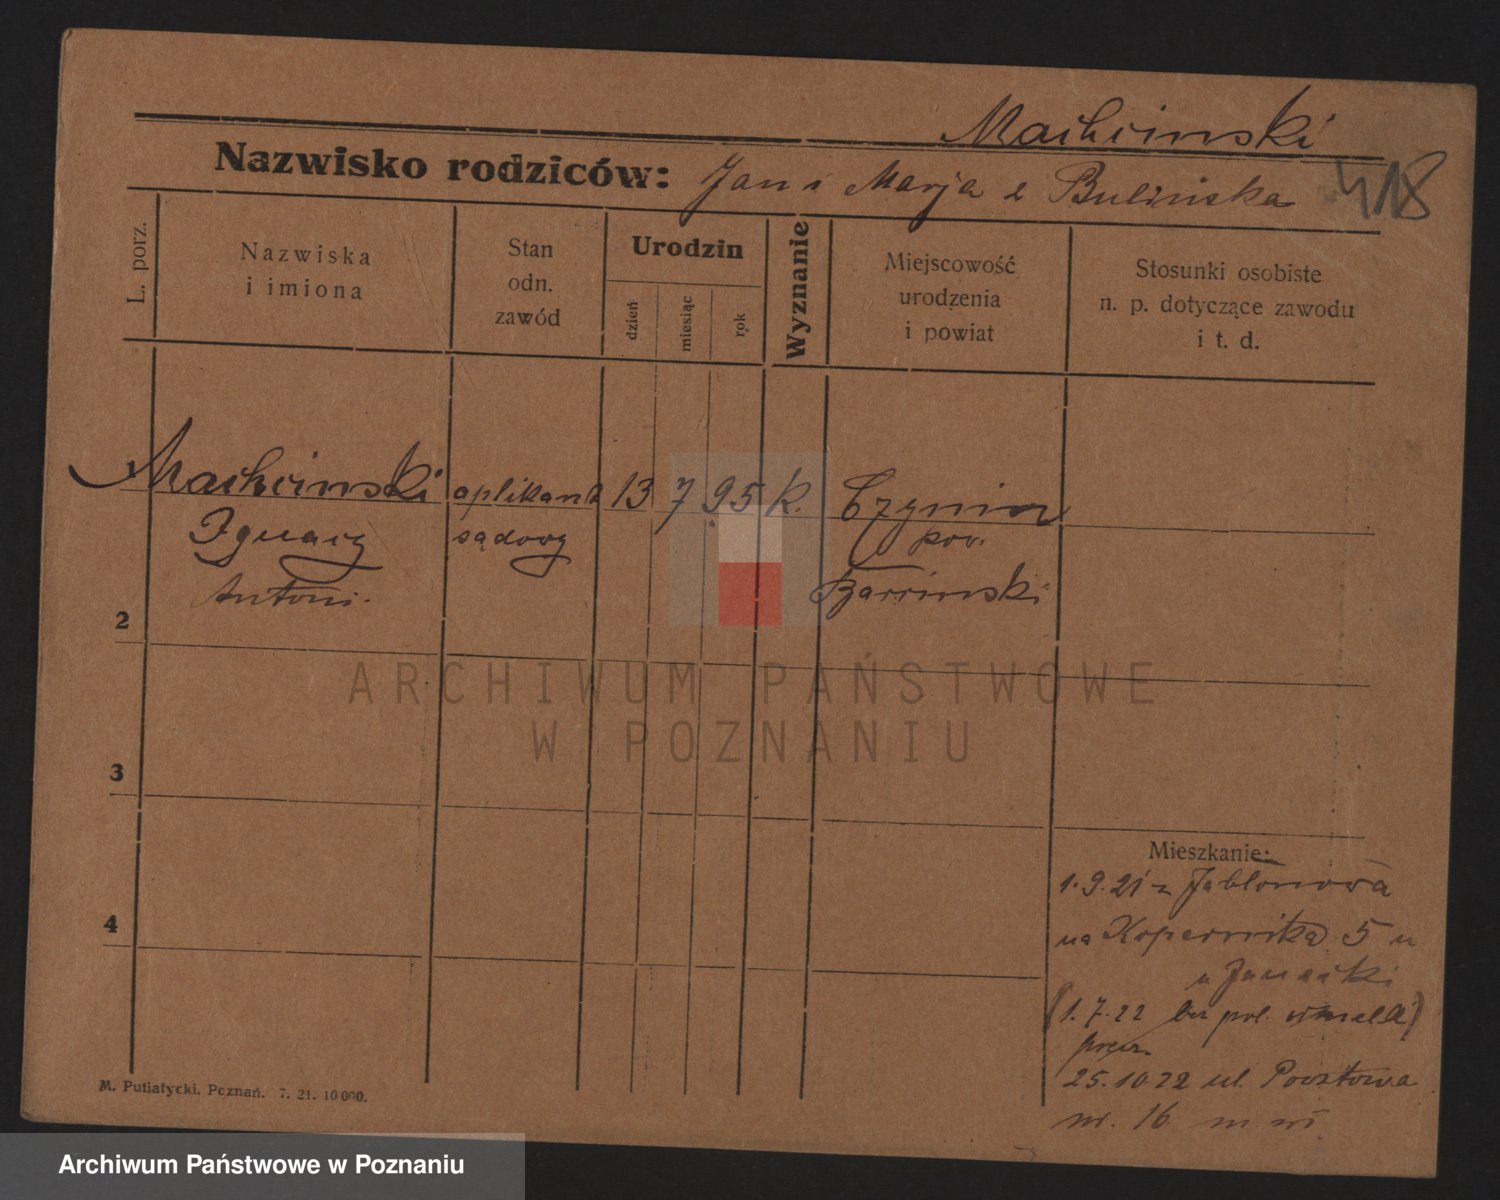 Machcinski
Nazwisko rodziców: Jan i Marja z Bulińska
418
L. porz.
Nazwiska
i imiona
Stan
odn.
zawód
Urodzin
dzień
miesiąc
rok
Wyznanie
Miejscowość
urodzenia
i powiat
Stosunki osobiste
n. p. dotyczące zawodu
i t. d.
1 Machcinski aplikant 13 7 95 k.
Ignacy sądowy pow.
Antoni.
2
3
4
Mieszkanie:
1.9.21 z Jabłonowa
na Kopernika 5
(1.7.22 bez pol.
25.10.22 ul. Pocztowa
nr. 16
M. Putiatycki. Poznań. 7. 21. 10000.
ARCHIWUM PAŃSTWOWE
W POZNANIU
Archiwum Państwowe w Poznaniu